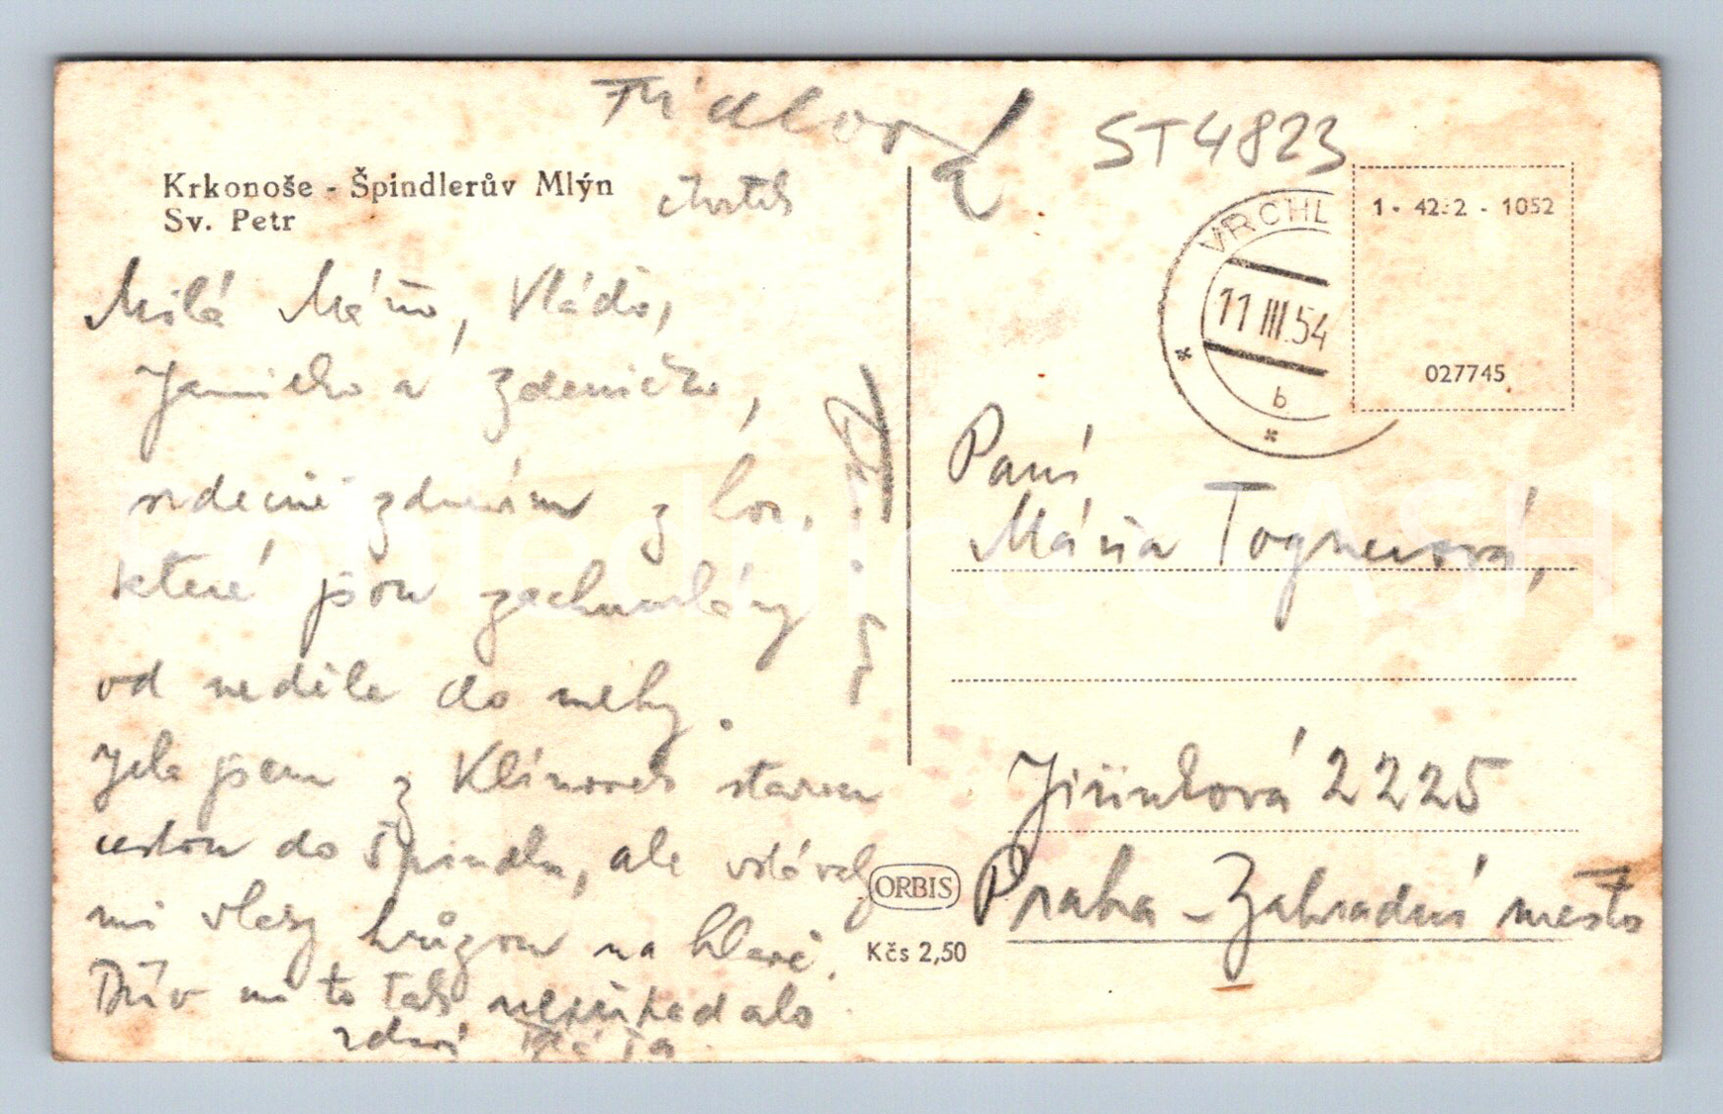 Fridlova
ST4823
Krkonoše - Špindlerův Mlýn
Sv. Petr
čtvrtek
Milá Máňo, Vláďo,
Jeničko a Zdeničko,
srdečně zdravím z hor,
které jsou zachumlány
od neděle do mlhy.
Jela jsem z Klínovek starou
cestou do Špindlu, ale vstávaly
mi vlasy hrůzou na hlavě.
Dřív mi to tak nepřipadalo
zdraví
VRCHL
11 III.54
b
1 - 42:2 - 1052
027745
Paní
Mária Tognerová,
Jiřinková 2225
Praha - Zahradní město
ORBIS
Kčs 2,50